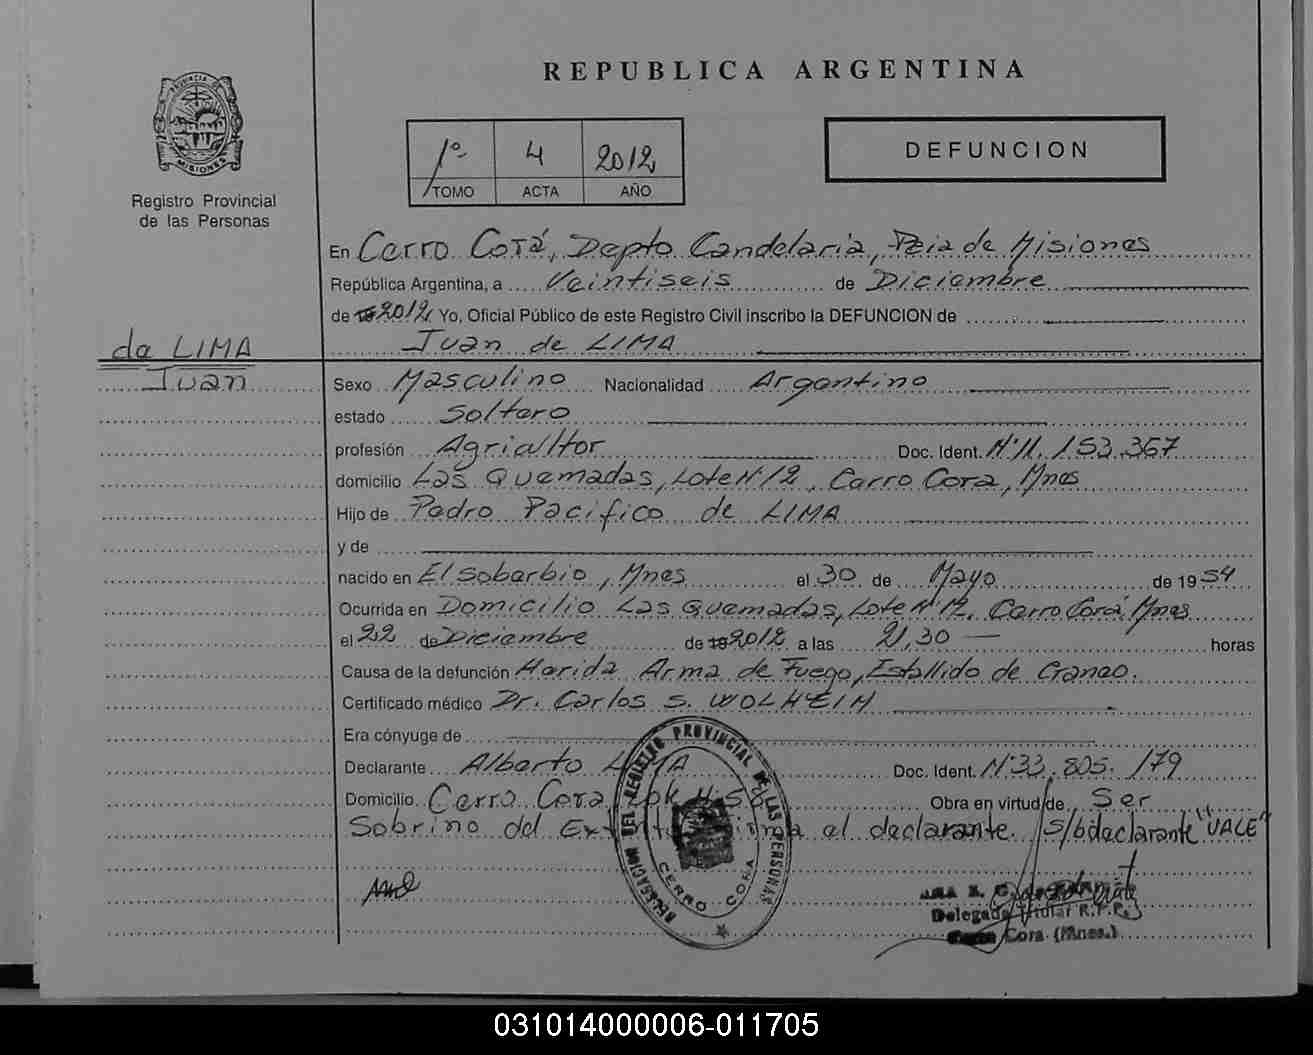 REPUBLICA ARGENTINA
PROVINCIA DE MISIONES
Registro Provincial
de las Personas
1º 4 2012
TOMO ACTA AÑO
DEFUNCION
En Cerro Corá, Depto Candelaria, Pcia de Misiones
República Argentina, a Veintiseis de Diciembre
de 19 2012 Yo, Oficial Público de este Registro Civil inscribo la DEFUNCION de
Juan de LIMA
de LIMA
Juan
Sexo Masculino Nacionalidad Argentino
estado Soltero
profesión Agricultor Doc. Ident. Nº11.153.367
domicilio Las Quemadas, Lote Nº12, Cerro Cora, Mnes
Hijo de Pedro Pacifico de LIMA
y de
nacido en El Sobarbio, Mnes el 30 de Mayo de 1954
Ocurrida en Domicilio Las Quemadas, Lote Nº12, Cerro Corá Mnes
el 22 de Diciembre de 19 2012 a las 21,30 horas
Causa de la defunción Herida Arma de Fuego, Estallido de Craneo.
Certificado médico Dr. Carlos S. WOLHEIM
Era cónyuge de
Declarante Alberto LIMA Doc. Ident. Nº33.805.179
Domicilio Cerro Cora, Lote Nº Obra en virtud de Ser
Sobrino del Extinto firma el declarante. S/b declarante "VALE"
DELEGACION DEL REGISTRO PROVINCIAL DE LAS PERSONAS
CERRO CORA
Delegada Titular R.P.P.
Cerro Cora (Mnes.)
031014000006-011705